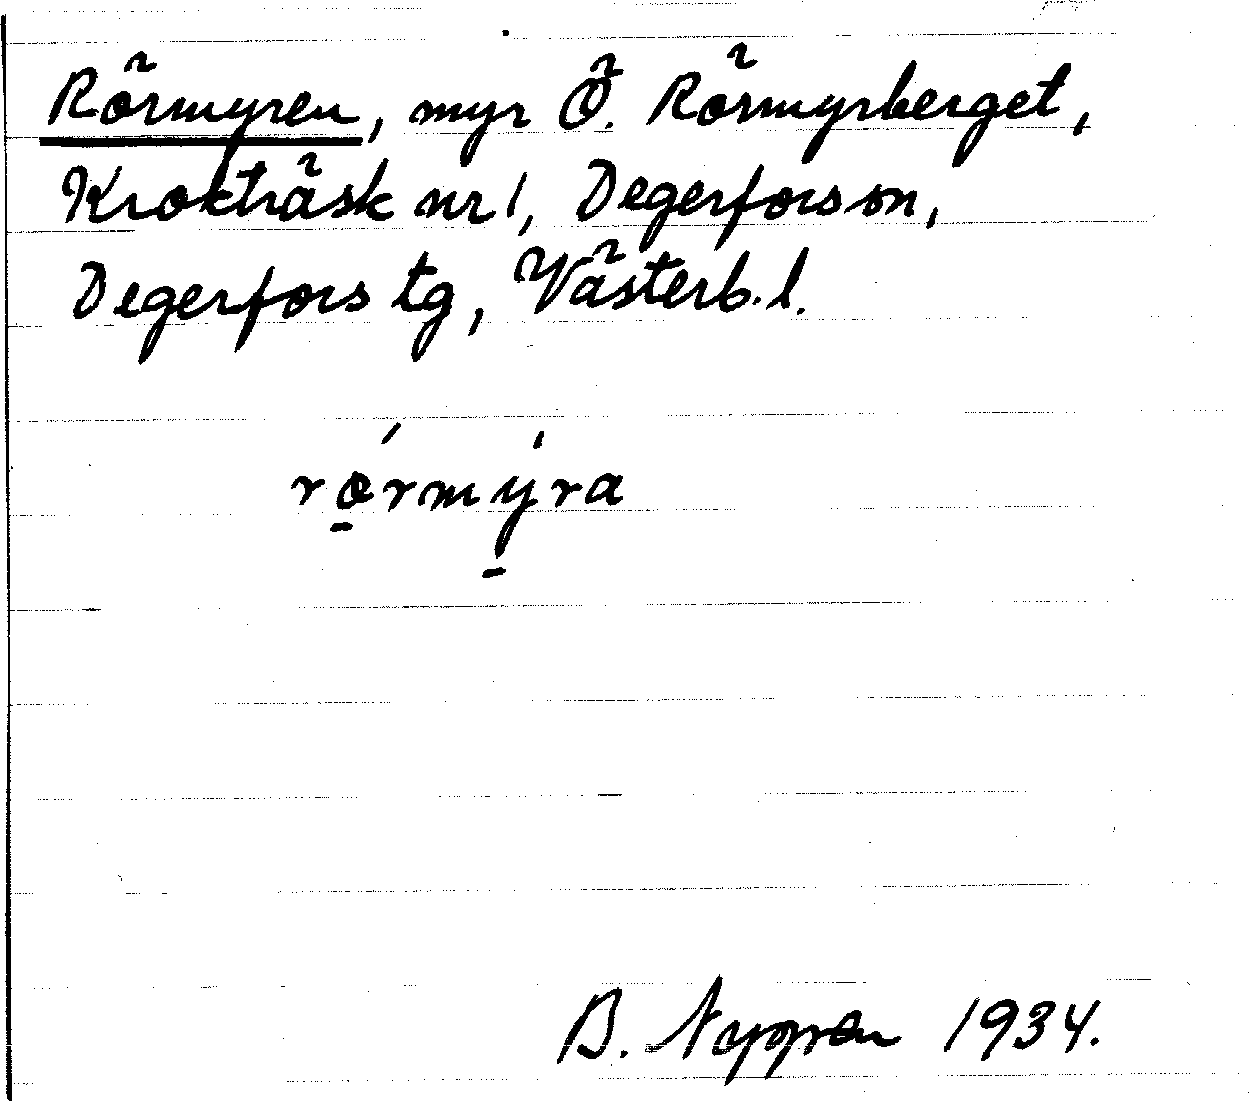 Rörmyren, myr Ö. Rörmyrberget,
Krokträsk nr 1, Degerfors sn,
Degerfors tg, Västerb. l.
rǫ́rmy̱̍ra
B. 1934.